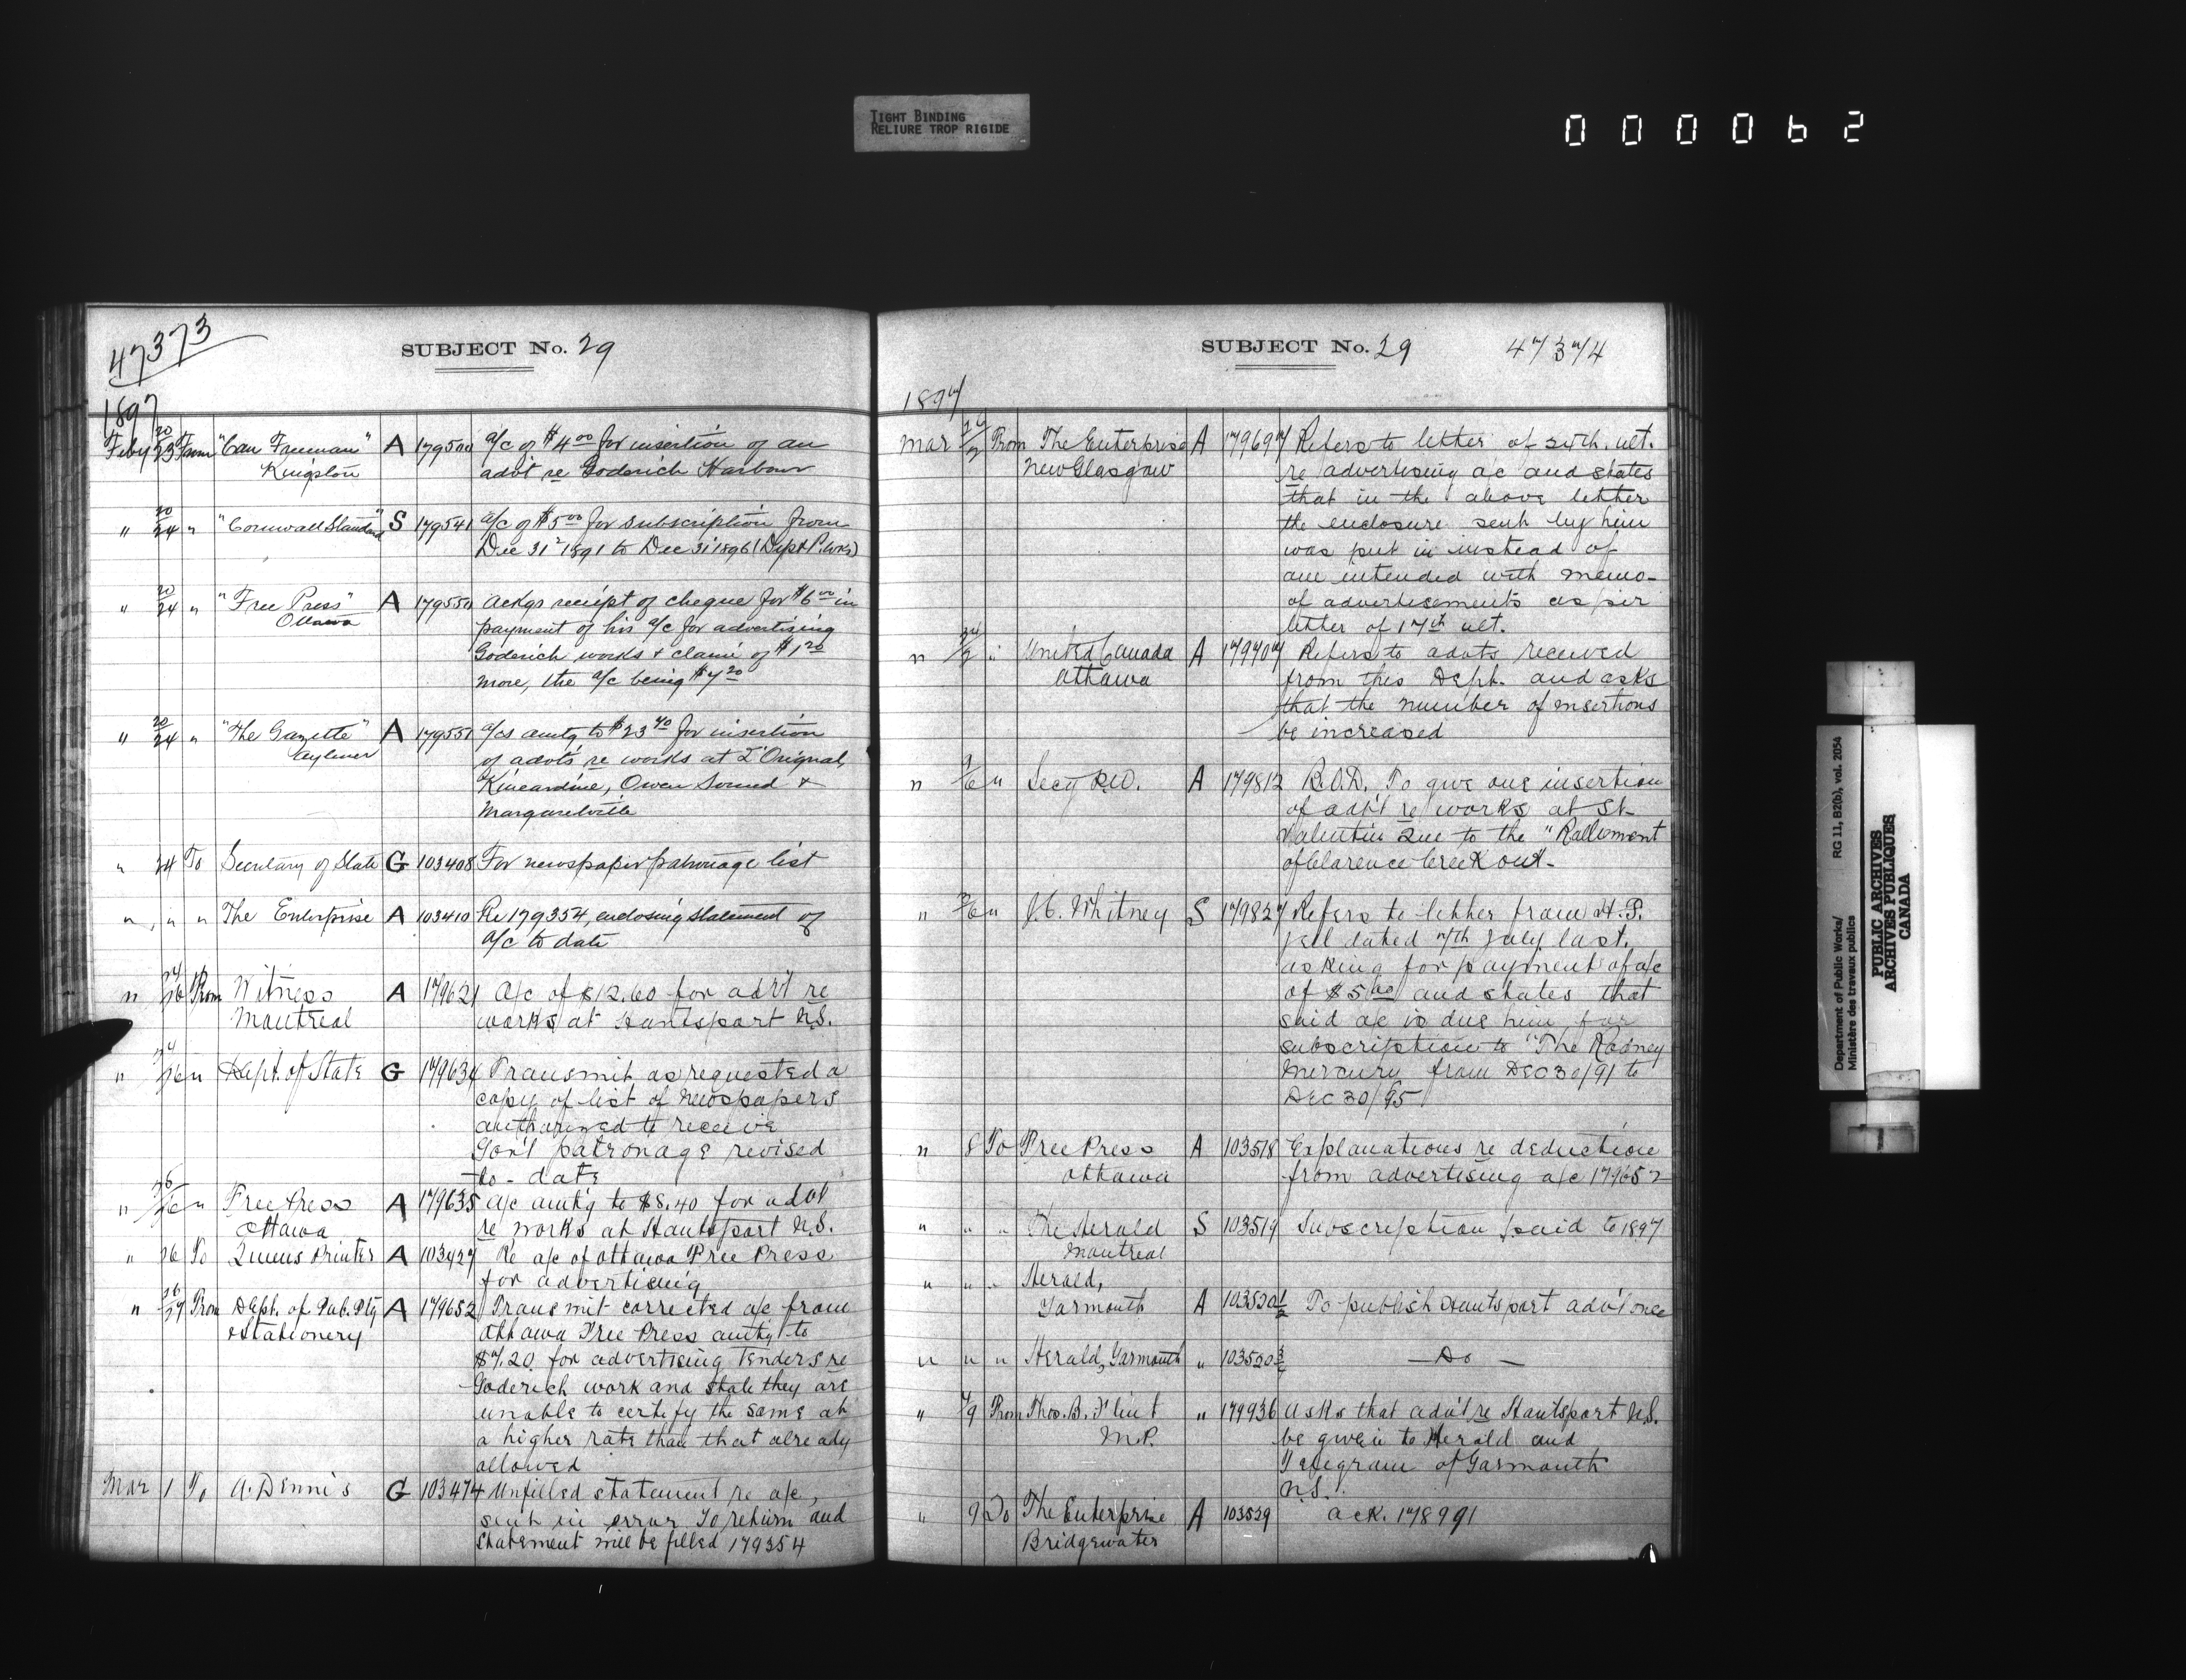 TIGHT BINDING
RELIURE TROP RIGIDE
0000062
47373
SUBJECT No. 29
1897
Feby 20/23 From "Can Freeman" A 179500 a/c of $4.00 for insertion of an
Kingston advt re Goderich Harbour
" 20/24 " "Cornwall Standard" S 179541 a/c of $5.00 for subscription from
Dec 31st 1891 to Dec 31st 1896 (Dept P. Wks)
" 20/24 " "Free Press" A 179550 Ackgs receipt of cheque for $6.00 in
Ottawa payment of his a/c for advertising
Goderich works & claim of $1.20
more, the a/c being $7.20
" 20/24 " "The Gazette" A 179551 a/cs amtg to $23.40 for insertion
Aylmer of advts re works at L'Orignal,
Kincardine, Owen Sound &
Margaretville
" 24 To Secretary of State G 103408 For newspaper patronage list
" " " The Enterprise A 103410 Re 179354, enclosing statement of
a/c to date
" 24/26 From Witness A 179621 A/c of $12.60 for adv't re
Montreal works at Hantsport N.S.
" 24/26 " Dept. of State G 179634 Transmit as requested a
copy of list of Newspapers
authorized to receive
Gov't patronage revised
to-date
" 26/26 " Free Press A 179635 a/c amt'g to $8.40 for advt
Ottawa re works at Hantsport N.S.
" 26 To Queens Printer A 103427 Re a/c of Ottawa Free Press
for advertising
" 26/27 From Dept. of Pub. Ptg A 179652 Transmit corrected a/c from
& Stationery Ottawa Free Press amt'g to
$7.20 for advertising Tenders re
Goderich work and state they are
unable to certify the same at
a higher rate than that already
allowed
Mar 1 To A. Dennis G 103474 Unfilled statement re a/c,
sent in error To return and
statement will be filled 179354
SUBJECT No. 29 47374
1897
Mar From The Enterprise A 179697 Refers to letter of 24th. ult.
New Glasgow re advertising a/c and states
that in the above letter
the enclosure sent by him
was put in instead of
one intended with memo-
of advertisements as per
letter of 17th ult.
" " United Canada A 179707 Refers to advts received
Ottawa from this Dept. and asks
that the number of insertions
be increased
" " Secy P.W. A 179812 To give one insertion
of adv't re works at St-
Valentin Que to the "Ralliement
of Clarence Creek Ont-
" " J.C. Whitney S 179827 Refers to letter from H.P.
dated 7th July last.
asking for payment of a/c
of $5.00 and states that
said a/c is due him for
subscription to "The Rodney
Mercury from DEC 30/91 to
DEC 30/95
" 8 To Free Press A 103518 Explanations re deduction
Ottawa from advertising a/c 179652
" " " The Herald S 103519 Subscription paid to 1897
Montreal
" " " Herald,
Yarmouth A 103520 1/2 To publish Hantsport adv't once
" " " Herald, Yarmouth " 103520 3/4 — Do —
" 7/9 From Thos. B. Flint " 179936 Asks that adv't re Hantsport N.S.
M.P. be given to Herald and
Telegram of Yarmouth
N.S.
" 9 To The Enterprise A 103529 ack. 178991
Bridgewater
Department of Public Works/
Ministère des travaux publics
RG 11, B2(b), vol. 2054
PUBLIC ARCHIVES
ARCHIVES PUBLIQUES
CANADA